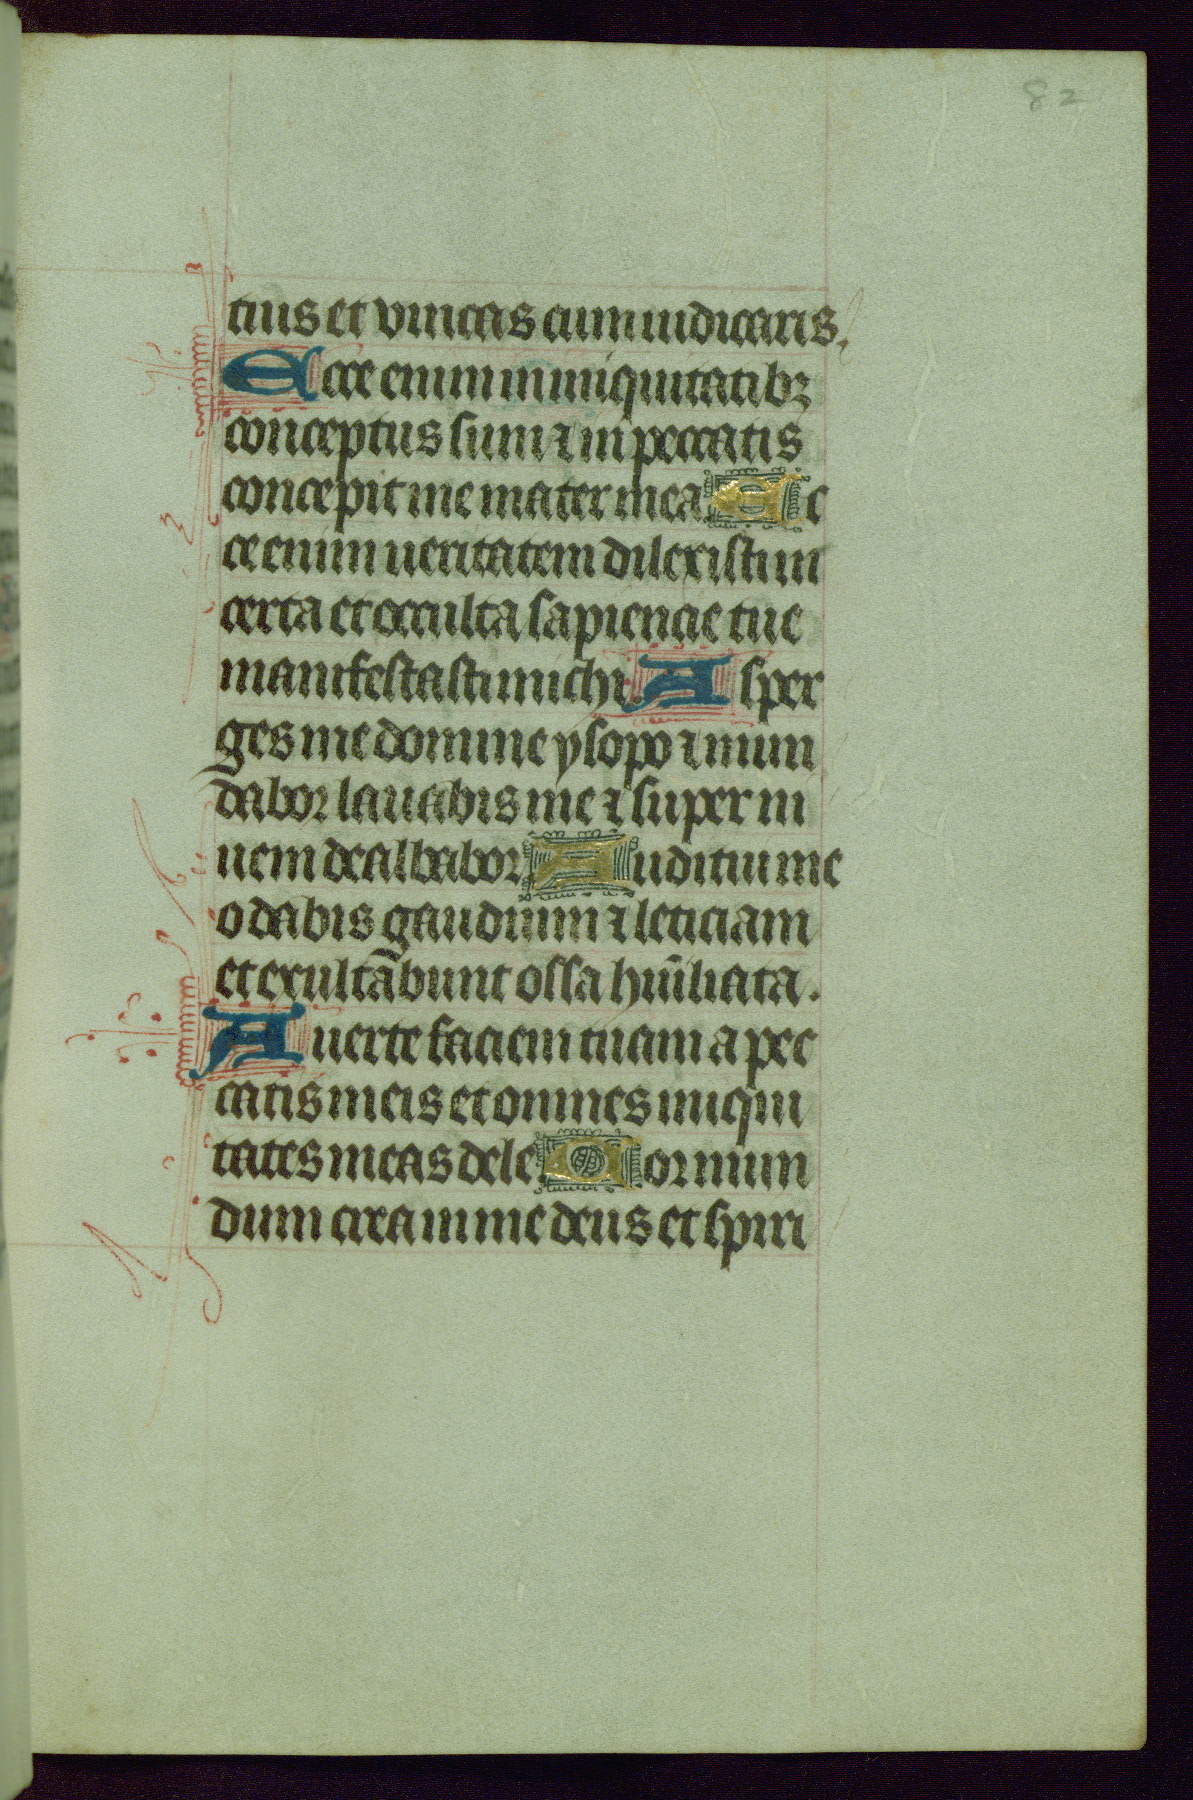 82
tuis et vincas cum iudicaris.
Ecce enim in iniquitatibꝫ
conceptus sum ⁊ in peccatis
concepit me mater mea Ec
ce enim ueritatem dilexisti in
certa et occulta sapiencie tue
manifestasti michi. Asper
ges me domine ysopo ⁊ mun
dabor lauabis me ⁊ super ni
uem dealbabor. Auditui me
o dabis gaudium ⁊ leticiam
et exultābunt ossa hūiliata.
Auerte faciem tuam a pec
catis meis et omnes iniqui
tates meas dele. Cor mun
dum crea in me deus et spiri